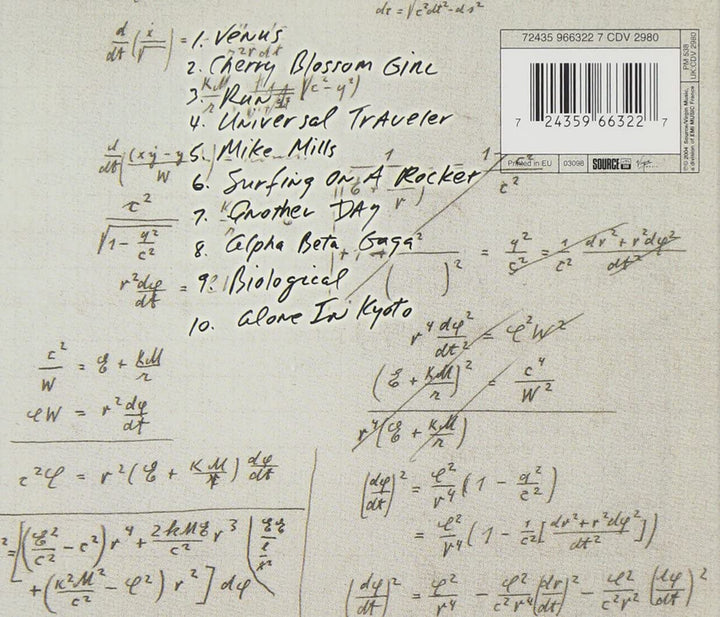 dt = √c²dt² - ds²
d/dt (ẋ/√
= 1. Venus
2. Cherry Blossom Girl
3. Run
(c² - y²)
4. Universal Traveler
5. Mike Mills
6. Surfing On A Rocket
7. Another Day
8. Alpha Beta Gaga
9. Biological
10. Alone In Kyoto
72435 966322 7 CDV 2980
7 24359 66322 7
Printed in EU 03098 SOURCE Virgin
PM 528
UK:CDV 2980
℗© 2004 Source/Virgin Music,
a division of EMI MUSIC France
r²dφ/dt =
c²/W = ℰ + KM/r
φW = r² dφ/dt
c²φ = r²(ℰ + KM/r) dφ/dt
( )² = q²/c² = 1/c² (dr² + r²dφ²)/dt²
r⁴ dφ²/dt² = φ²W²
(ℰ + KM/r)² = c⁴/W²
r⁴(ℰ + KM/r)
(dφ/dt)² = φ²/r⁴ (1 - q²/c²)
= φ²/r⁴ (1 - 1/c² [(dr² + r²dφ²)/dt²])
(dφ/dt)² = φ²/r⁴ - φ²/c²r⁴ (dr/dt)² - φ²/c²r² (dφ/dt)²
(ℰ²/c² - c²) r⁴ + 2kMℰ/c² r³
+ (K²M²/c² - φ²) r² ] dφ